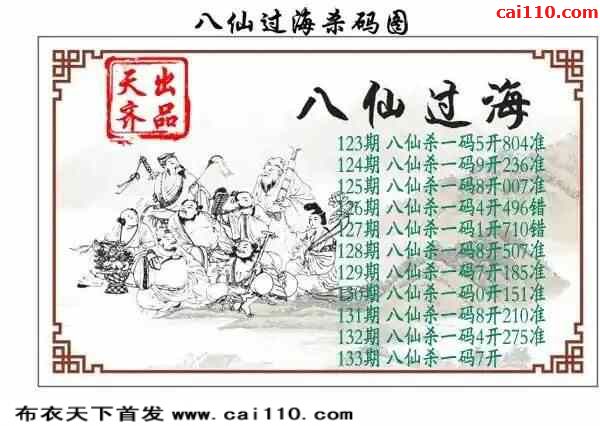 八仙过海杀码图
cai110.com
天齐
出品
八仙过海
123期 八仙杀一码5开804准
124期 八仙杀一码9开236准
125期 八仙杀一码8开007准
126期 八仙杀一码4开496错
127期 八仙杀一码1开710错
128期 八仙杀一码8开507准
129期 八仙杀一码7开185准
130期 八仙杀一码0开151准
131期 八仙杀一码8开210准
132期 八仙杀一码4开275准
133期 八仙杀一码7开
布衣天下首发 www.cai110.com